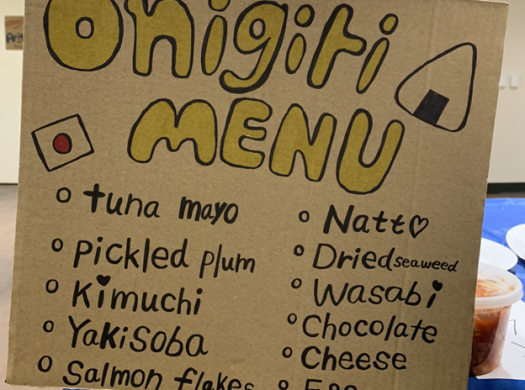 Onigiri
MENU
tuna mayo
Pickled plum
Kimuchi
Yakisoba
Salmon flakes
Natto♡
Dried seaweed
Wasabi
Chocolate
Cheese
Egg